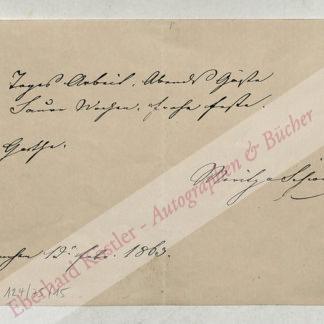 Tages Arbeit. Abends Gäste
Saure Wochen. Frohe Feste.
Goethe.
Moritz v Schwi
nchen 13ᵗ Febr. 1863.
124/75/15
Eberhard Köstler - Autographen & Bücher